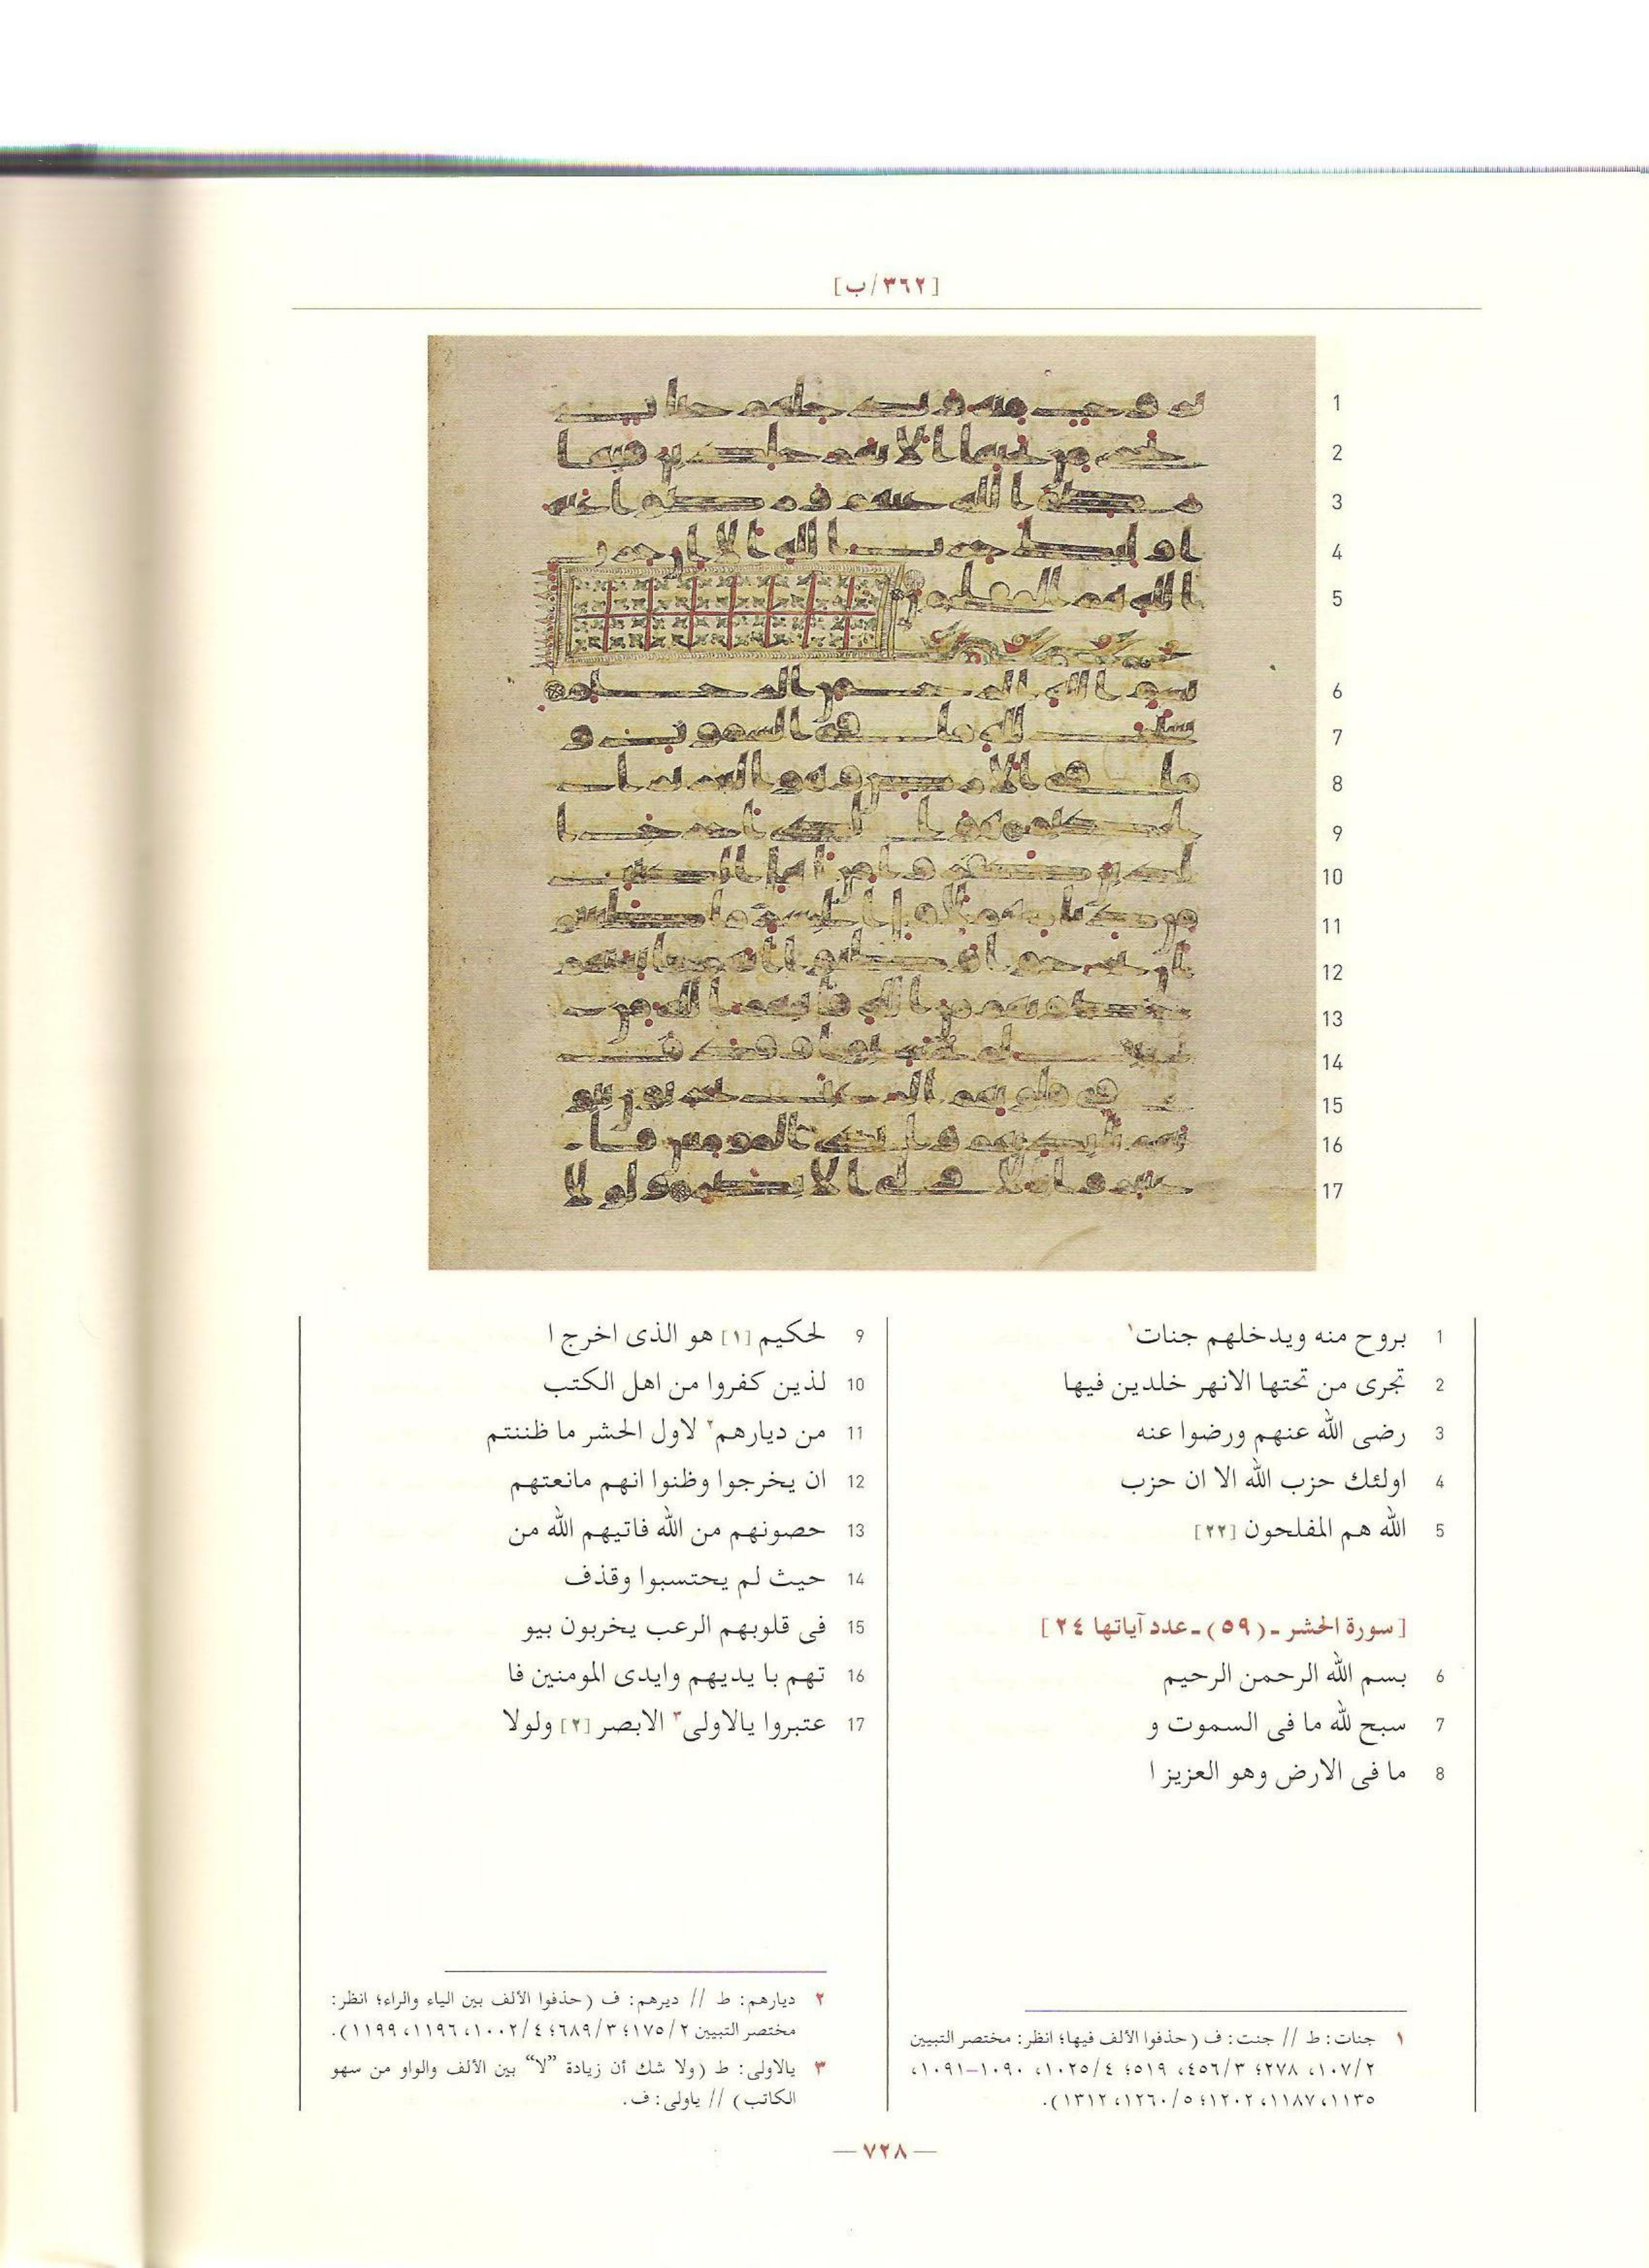 [٣٦٢/ب]
1 بروح منه ويدخلهم جنات١
2 تجرى من تحتها الانهر خلدين فيها
3 رضى الله عنهم ورضوا عنه
4 اولئك حزب الله الا ان حزب
5 الله هم المفلحون [٢٢]
[سورة الحشر ـ (٥٩) ـ عدد آياتها ٢٤]
6 بسم الله الرحمن الرحيم
7 سبح لله ما فى السموت و
8 ما فى الارض وهو العزيز ا
9 لحكيم [١] هو الذى اخرج ا
10 لذين كفروا من اهل الكتب
11 من ديارهم٢ لاول الحشر ما ظننتم
12 ان يخرجوا وظنوا انهم مانعتهم
13 حصونهم من الله فاتيهم الله من
14 حيث لم يحتسبوا وقذف
15 فى قلوبهم الرعب يخربون بيو
16 تهم با يديهم وايدى المومنين فا
17 عتبروا يالاولى٣ الابصر [٢] ولولا
١ جنات: ط // جنت: ف (حذفوا الألف فيها؛ انظر: مختصر التبيين
١٠٧/٢، ٢٧٨؛ ٤٥٦/٣، ٥١٩؛ ١٠٢٥/٤، ١٠٩٠–١٠٩١،
١١٣٥، ١١٨٧، ١٢٠٢؛ ١٢٦٠/٥، ١٣١٢).
٢ ديارهم: ط // ديرهم: ف (حذفوا الألف بين الياء والراء؛ انظر:
مختصر التبيين ١٧٥/٢؛ ٦٨٩/٣؛ ١٠٠٢/٤، ١١٩٦، ١١٩٩).
٣ يالاولى: ط (ولا شك أن زيادة "لا" بين الألف والواو من سهو
الكاتب) // ياولى: ف.
— ٧٢٨ —